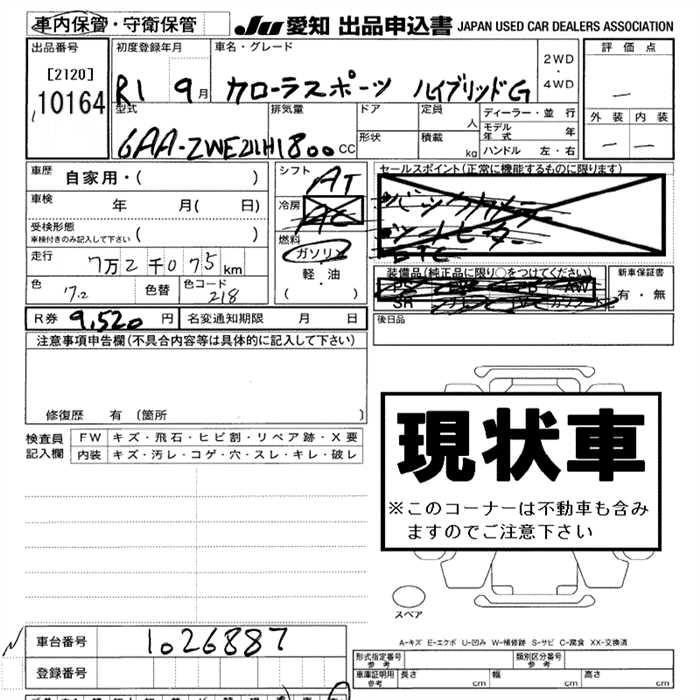 車内保管・守衛保管 JU 愛知 出品申込書 JAPAN USED CAR DEALERS ASSOCIATION
出品番号 初度登録年月 車名・グレード 評価点
[2120] 2WD・4WD
10164 R1 9月 カローラスポーツ ハイブリッドG —
型式 排気量 ドア 定員 人 ディーラー・並行 外装 内装
モデル年式 年
6AA-ZWE211H 1800cc 形状 積載 kg ハンドル 左・右 — —
車歴 自家用・( ) シフト AT セールスポイント(正常に機能するものに限ります)
車検 年 月( 日) 冷房 AC バックカメラー
受検形態 シートヒーター
車検付きのみ記入して下さい ( ) 燃料 ETC
走行 7万2千075km ガソリン 装備品(純正品に限り○をつけてください) 新車保証書
軽・油 PS AW 有・無
色 色替 色コード 218 ( ) SR TV
R券 9,520円 名変通知期限 月 日 後日品
注意事項申告欄(不具合内容等は具体的に記入して下さい)
修復歴 有 (箇所 )
検査員記入欄 FW キズ・飛石・ヒビ割・リペア跡・X要
内装 キズ・汚レ・コゲ・穴・スレ・キレ・破レ
現状車
※このコーナーは不動車も含み
ますのでご注意下さい
スペア
A-キズ E-エクボ U-凹み W-補修跡 S-サビ C-腐食 XX-交換済
車台番号 1026887
登録番号
形式指定番号 参考 類別区分番号 参考
車庫証明用 参考 長さ cm 幅 cm 高さ cm